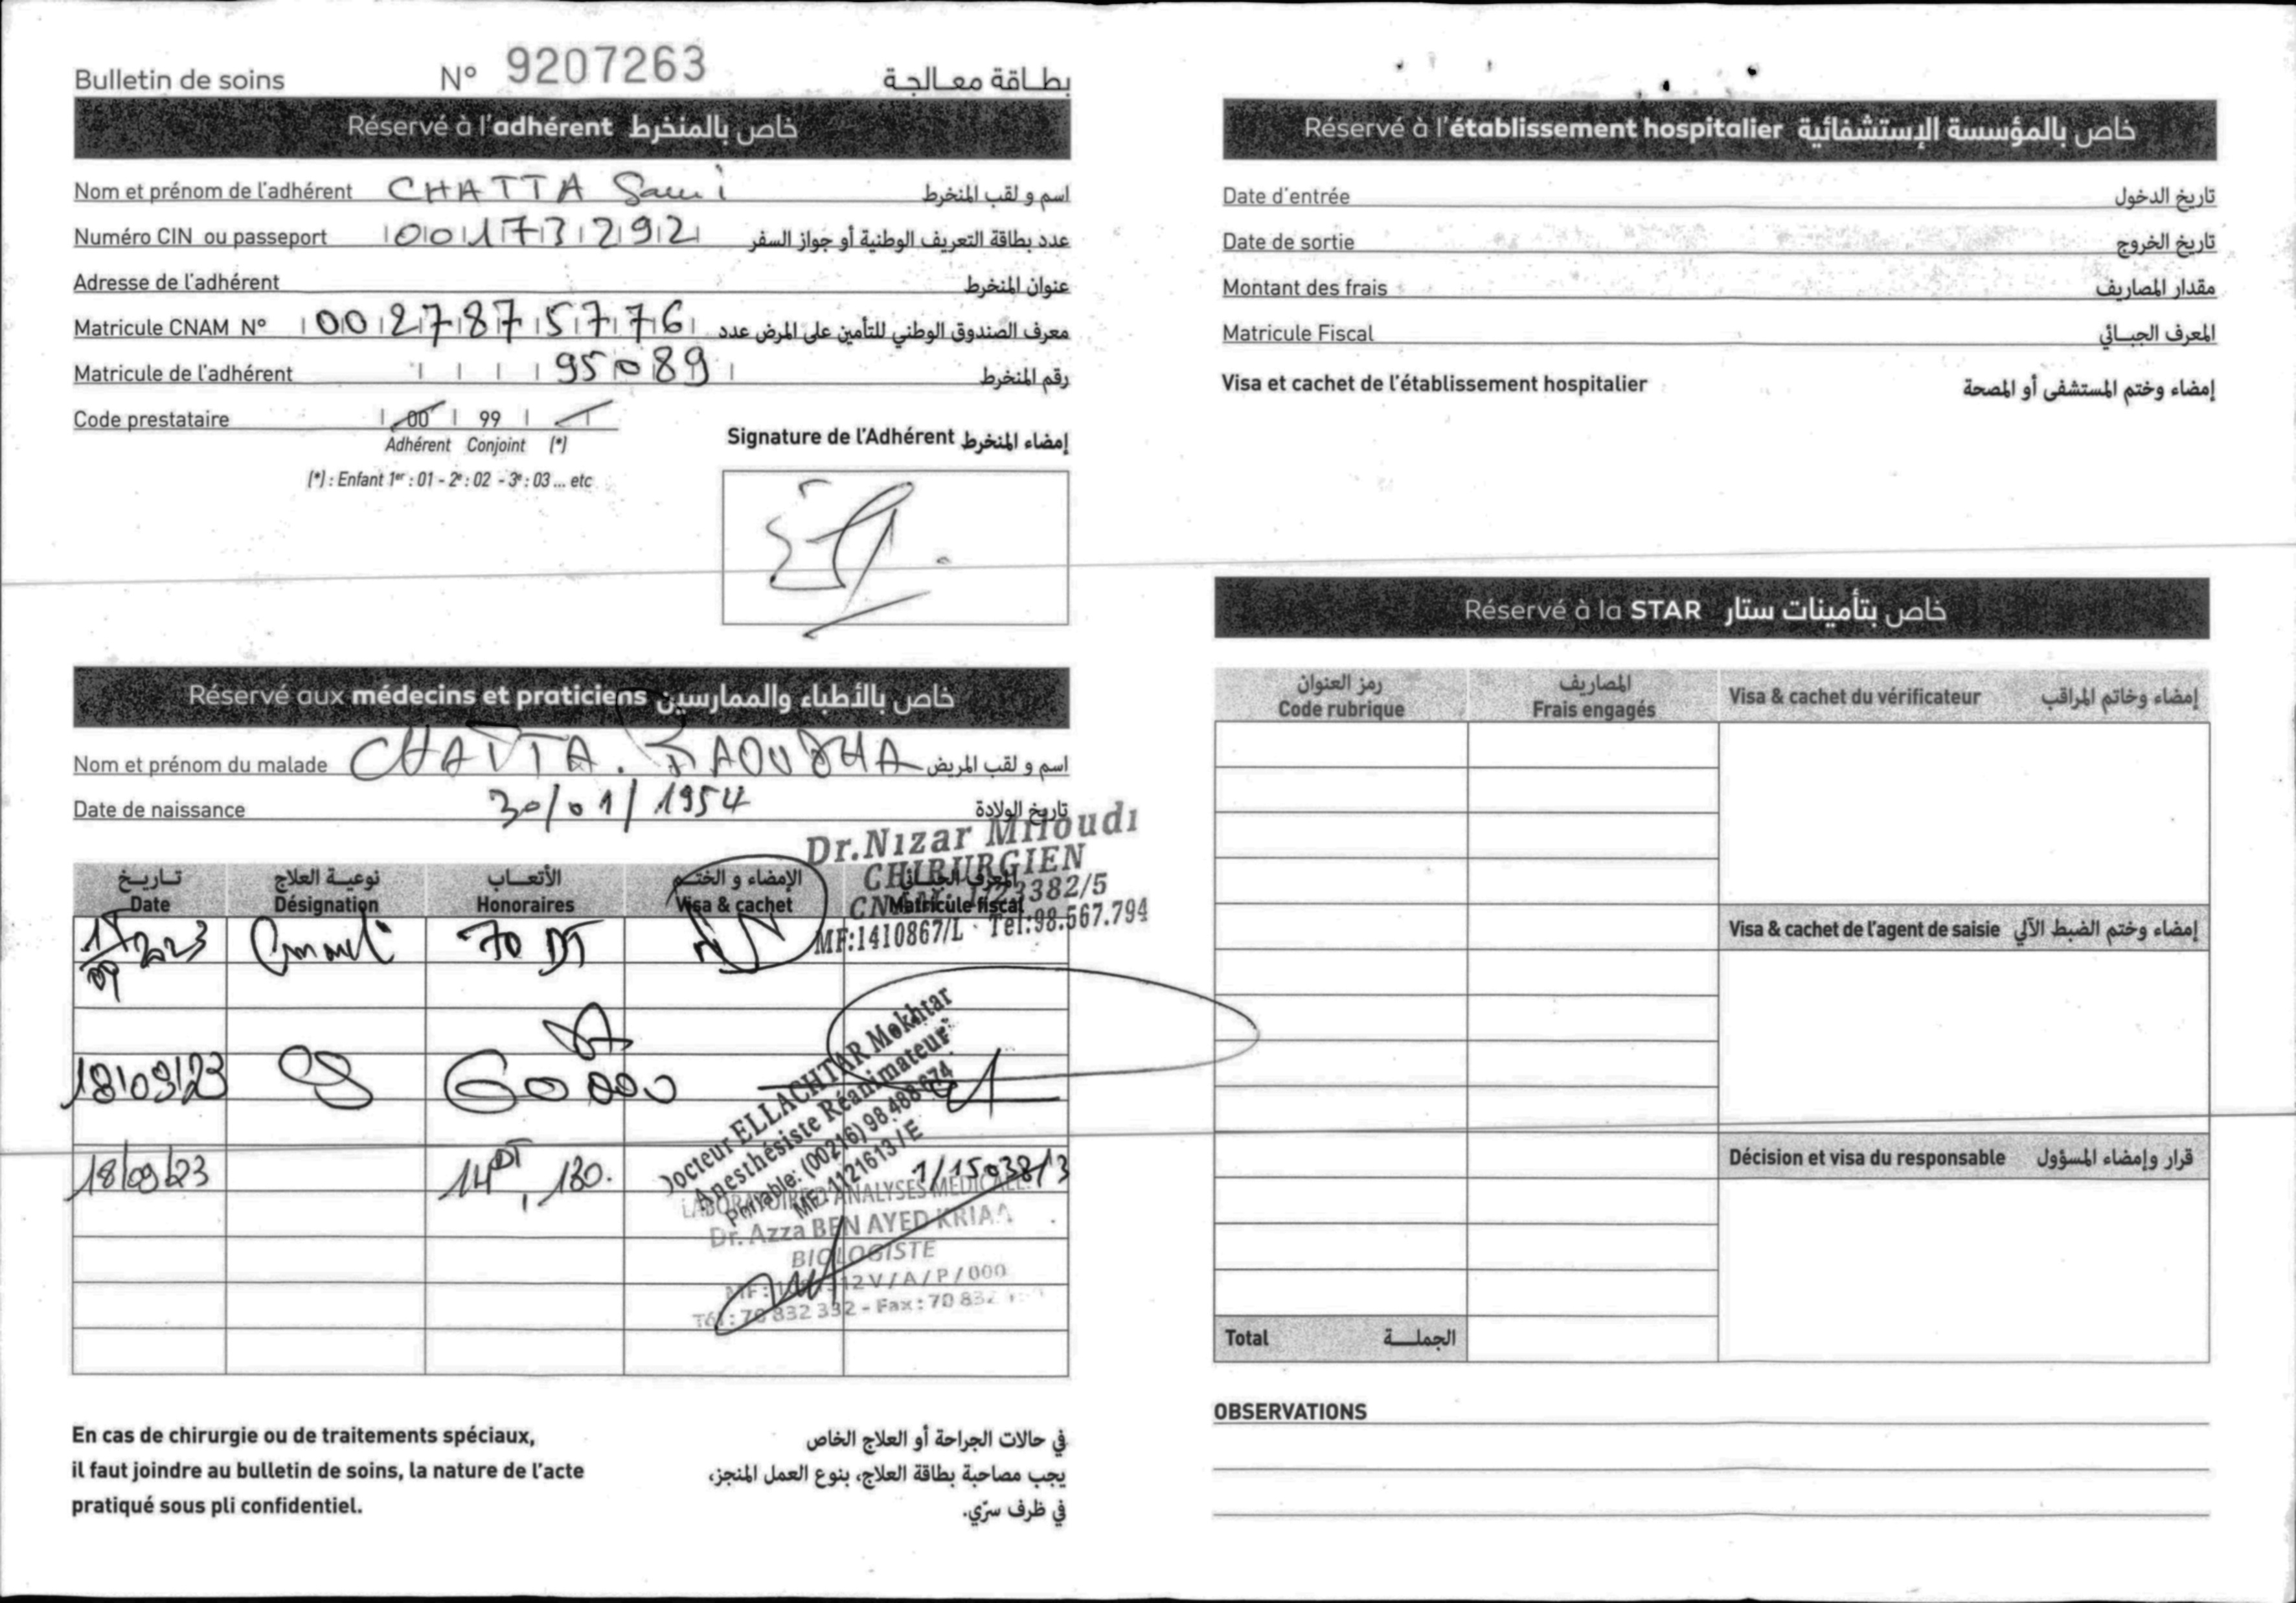 Bulletin de soins N° 9207263 بطاقة معالجة
Réservé à l'adhérent خاص بالمنخرط
Nom et prénom de l'adhérent CHATTA Sami اسم و لقب المنخرط
Numéro CIN ou passeport 00173292 عدد بطاقة التعريف الوطنية أو جواز السفر
Adresse de l'adhérent عنوان المنخرط
Matricule CNAM N° 0027875776 معرف الصندوق الوطني للتأمين على المرض عدد
Matricule de l'adhérent 95089 رقم المنخرط
Code prestataire 00 99
Adhérent Conjoint (*)
(*) : Enfant 1er : 01 - 2e : 02 - 3e : 03 ... etc
Signature de l'Adhérent إمضاء المنخرط
Réservé aux médecins et praticiens خاص بالأطباء والممارسين
Nom et prénom du malade CHATTA. RAOUDHA اسم و لقب المريض
Date de naissance 30/01/1954 تاريخ الولادة
Dr.Nizar Miloudi
CHIRURGIEN
CNAM 1/23382/5
MF:1410867/L Tel:98.567.794
تاريخ نوعية العلاج الأتعاب الإمضاء و الختم المعرف الجبائي
Date Désignation Honoraires Visa & cachet Matricule fiscal
2023 70 DT
09
18/09/23 60 000
Docteur ELLACHTAR Mokhtar
Anesthésiste Réanimateur
Portable: (00216) 98 488 674
MF: 1121613/E
18/09/23 14DT, 130. 1/15038/13
LABORATOIRE D'ANALYSES MEDICALES
Dr. Azza BEN AYED KRIAA
BIOLOGISTE
V/A/P/000
Tél : 70 832 332 - Fax : 70 832
En cas de chirurgie ou de traitements spéciaux,
il faut joindre au bulletin de soins, la nature de l'acte
pratiqué sous pli confidentiel.
في حالات الجراحة أو العلاج الخاص
يجب مصاحبة بطاقة العلاج، بنوع العمل المنجز،
في ظرف سرّي.
Réservé à l'établissement hospitalier خاص بالمؤسسة الإستشفائية
Date d'entrée تاريخ الدخول
Date de sortie تاريخ الخروج
Montant des frais مقدار المصاريف
Matricule Fiscal المعرف الجبائي
Visa et cachet de l'établissement hospitalier إمضاء وختم المستشفى أو المصحة
Réservé à la STAR خاص بتأمينات ستار
رمز العنوان المصاريف
Code rubrique Frais engagés
Visa & cachet du vérificateur إمضاء وخاتم المراقب
Visa & cachet de l'agent de saisie إمضاء وختم الضبط الآلي
Décision et visa du responsable قرار وإمضاء المسؤول
Total الجملة
OBSERVATIONS